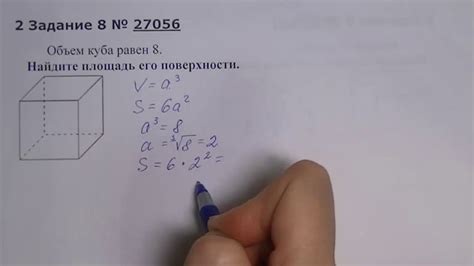 2 Задание 8 № 27056
Объем куба равен 8.
Найдите площадь его поверхности.
V = a³
S = 6a²
a³ = 8
a = ³√8 = 2
S = 6 · 2² =